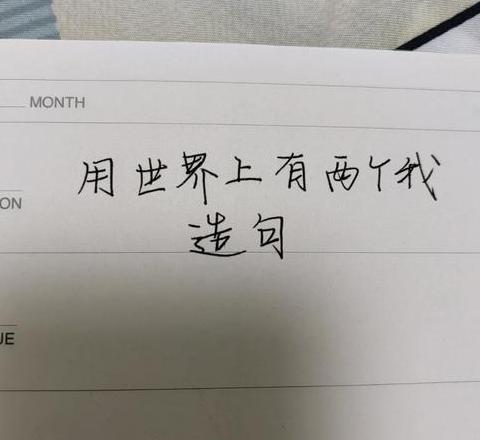 MONTH
用世界上有两个我
ON
造句
UE